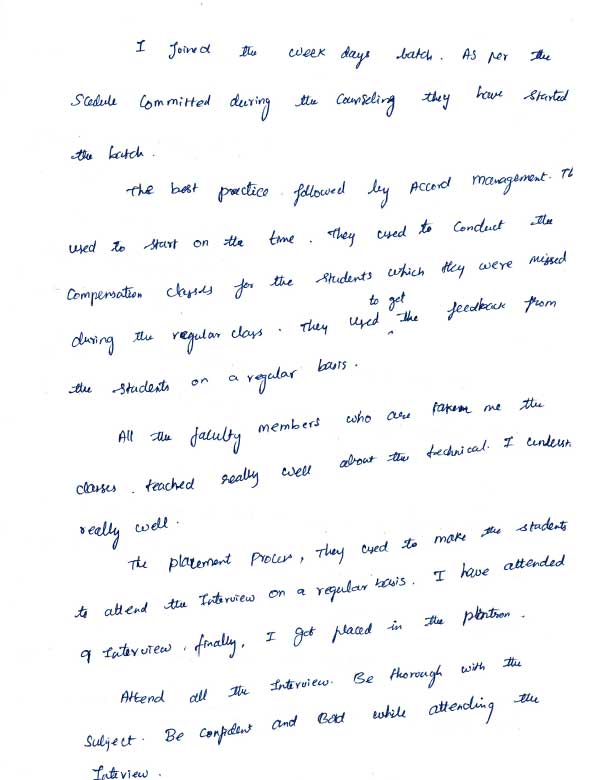 I Joined the week days batch. As per the
Scedule Committed during the Counseling they have started
the batch.
The best practice followed by Accord Management. Th
used to start on the time. They used to Conduct the
Compensation classes for the students which they were missed
during the regular class. They used to get the feedback from
the students on a regular basis.
All the faculty members who are taken me the
classes. teached really well about the technical. I underst
really well.
The placement Process, They used to make the students
to attend the Interview on a regular basis. I have attended
9 Interview. finally, I got placed in the
Attend all the Interview. Be thorough with the
Subject. Be Confident and Bold while attending the
Interview.